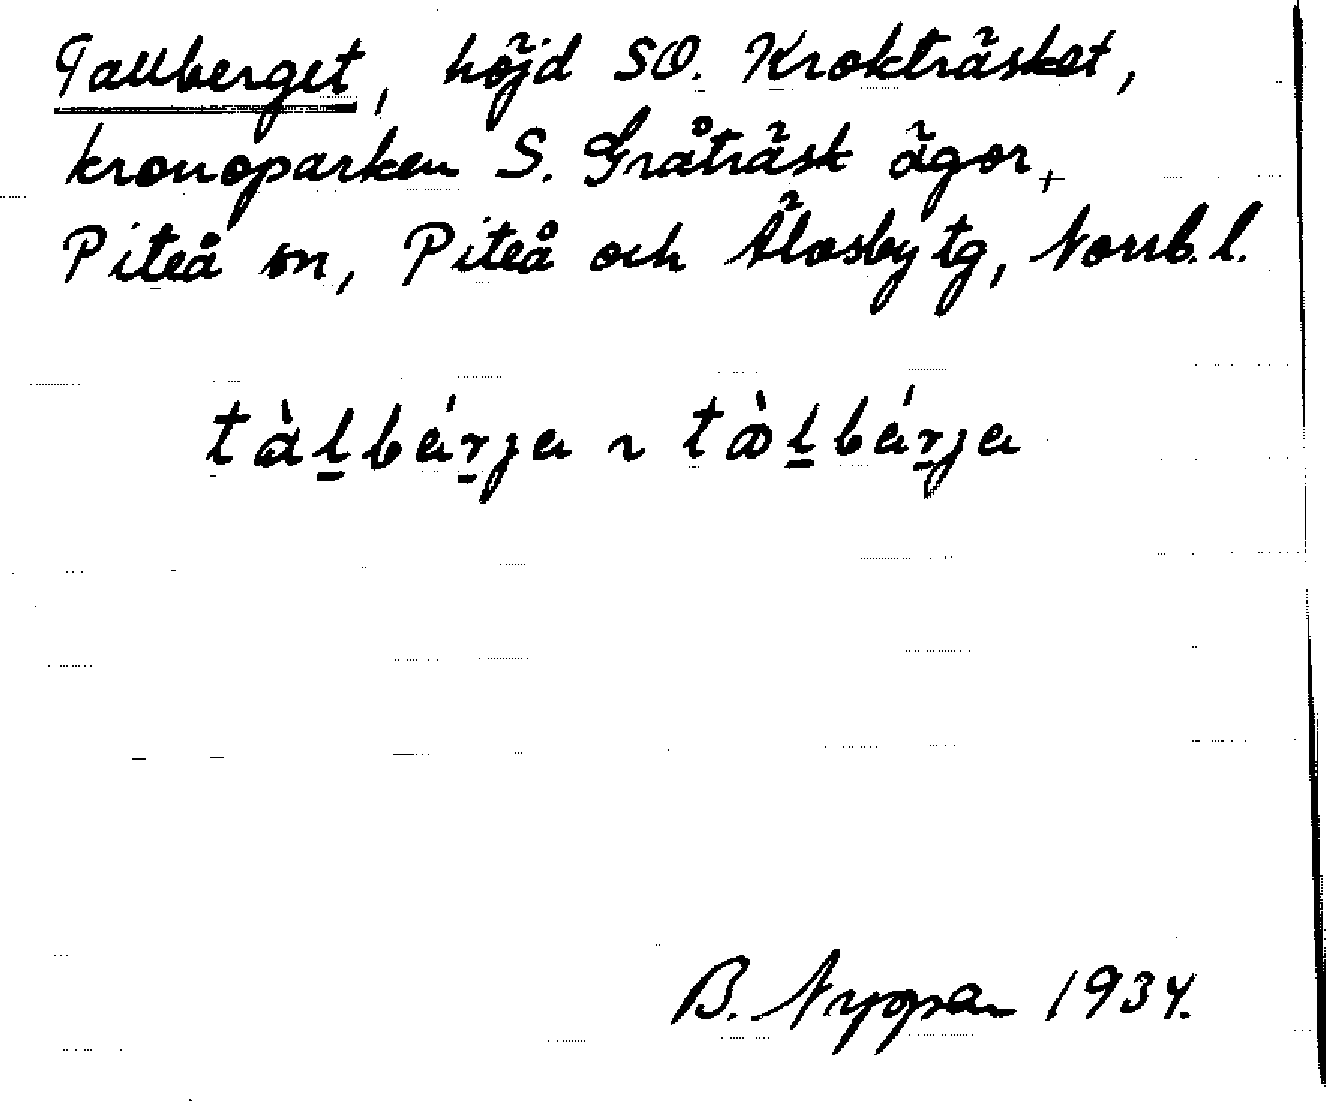 Tallberget, höjd SO. Krokträsket,
kronoparken S. Gråträsk ägor,
Piteå sn, Piteå och Älvsby tg, Norrb. l.
tàl̠bár̠ja ~ tàl̠bár̠ja
B. 1934.